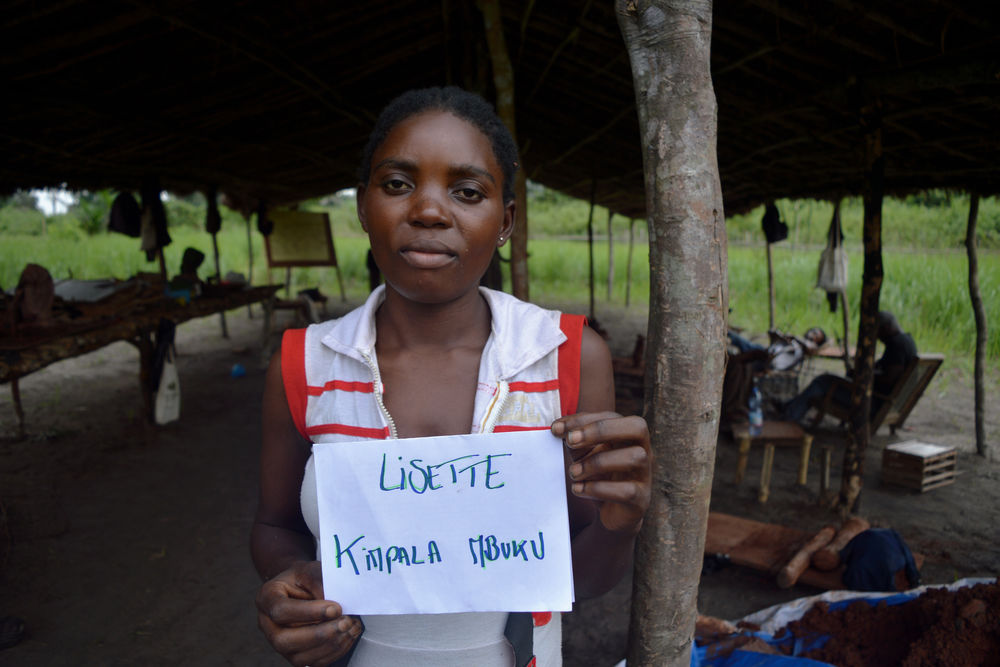 LiSETTE
KiMPALA MBUKU